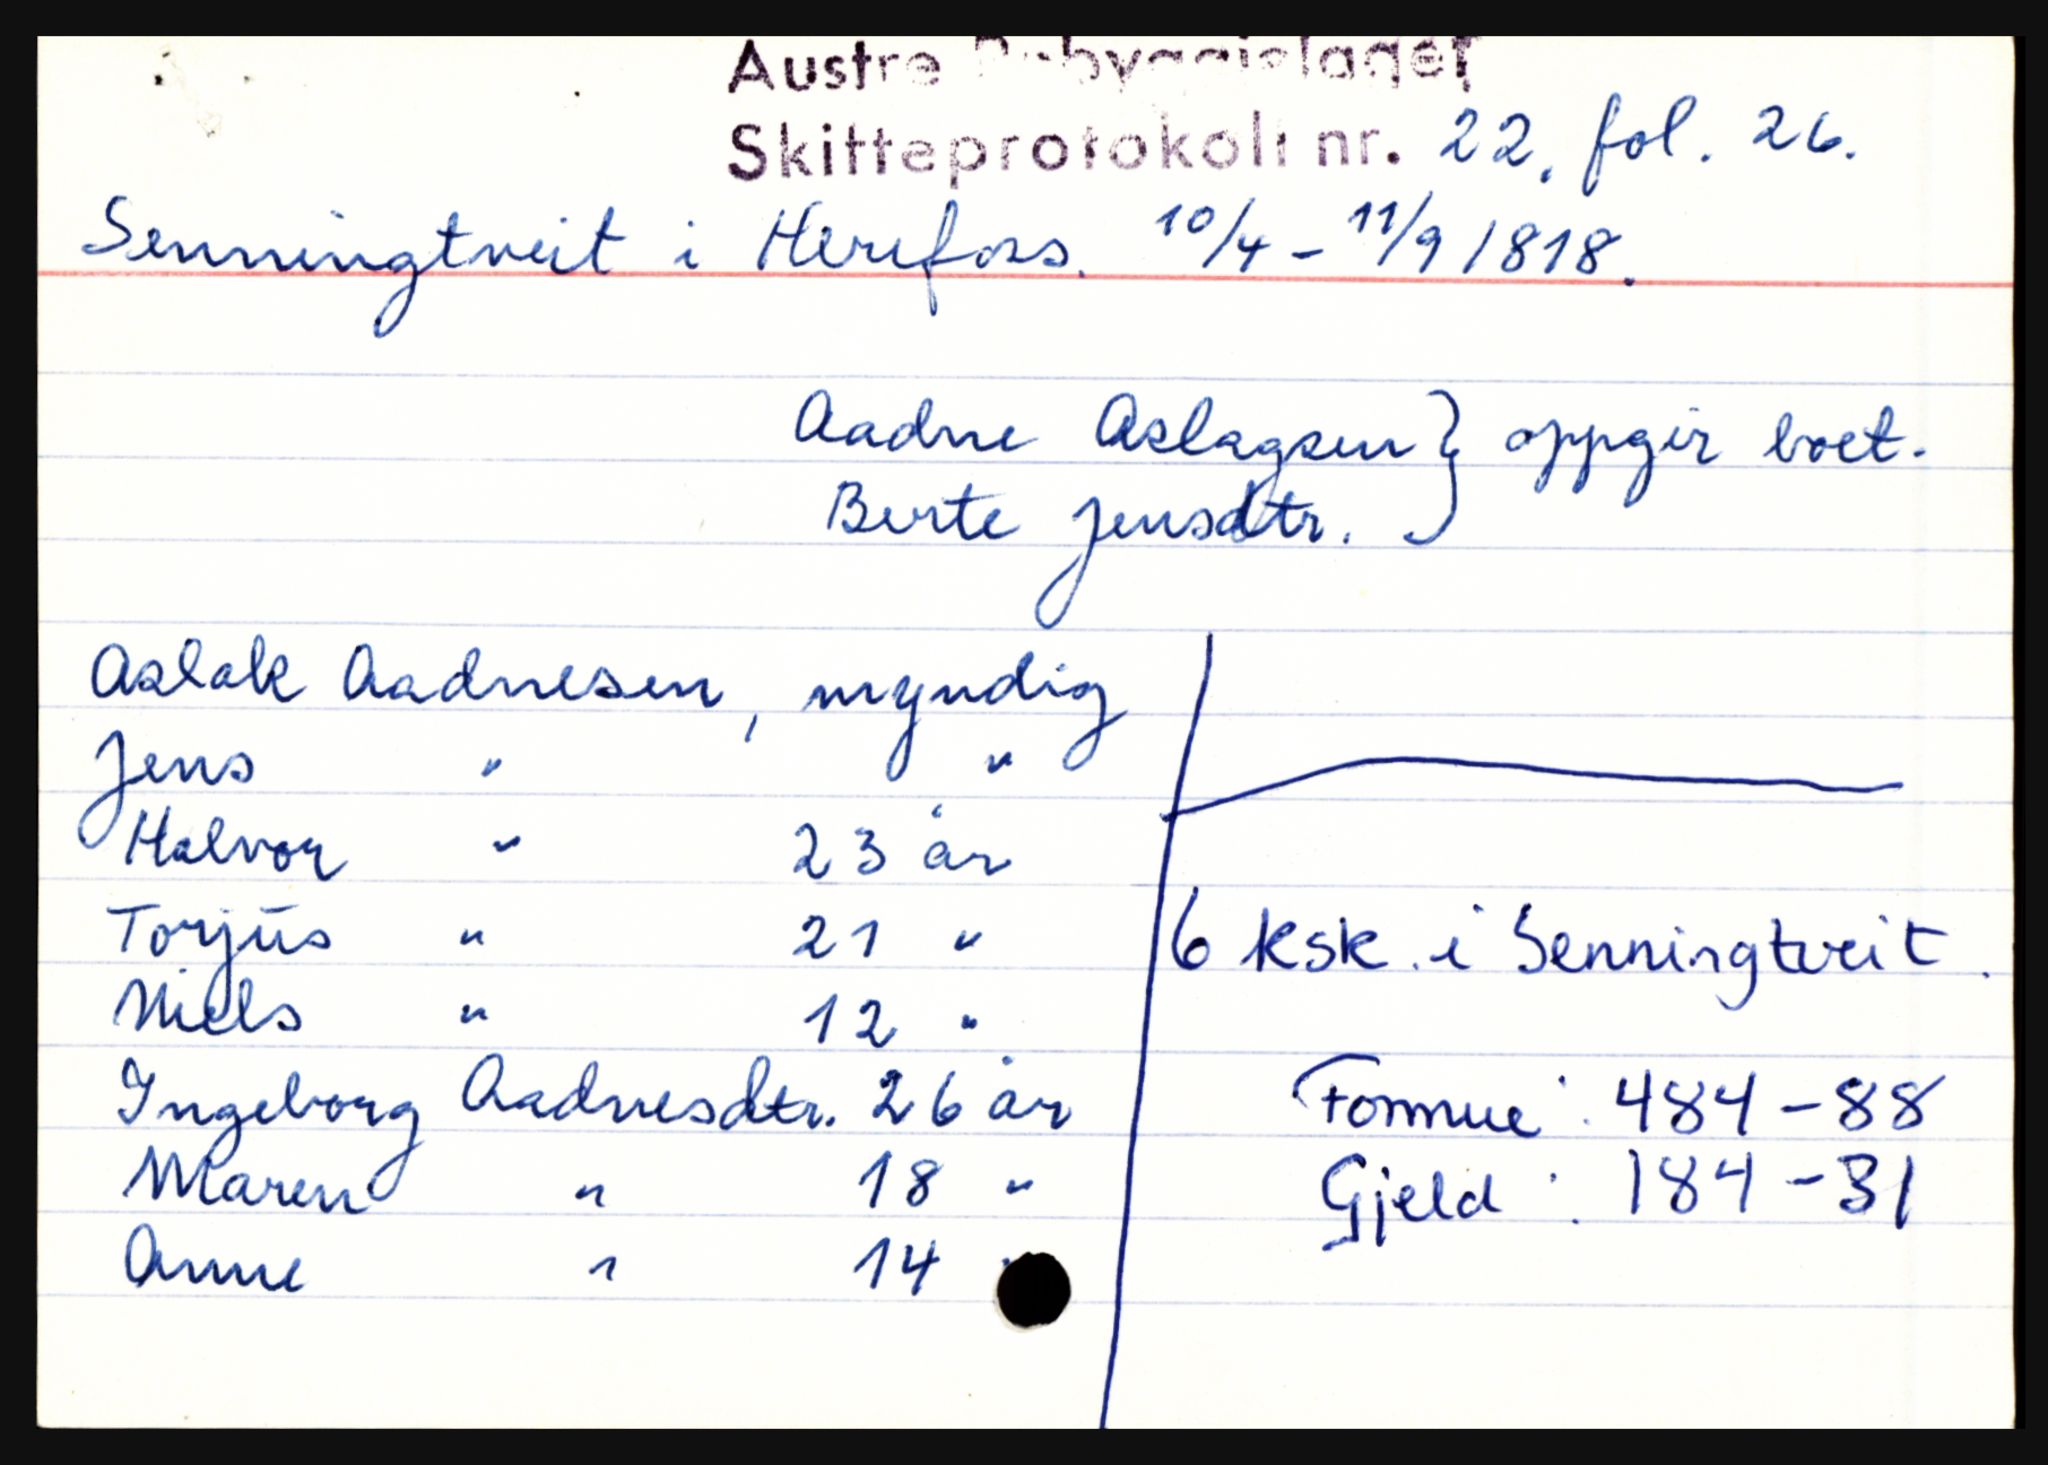 Austre Rabyggjelaget
Skifteprotokoll nr. 22. fol. 26.
Senningtveit i Herefoss. 10/4 - 11/9 1818.
Aadne Aslagsen } oppgir boet.
Berte Jensdtr.
Aslak Aadnesen, myndig
Jens " "
Halvor " 23 år
Torjus " 21 "
6 ksk. i Senningtveit.
Niels " 12 "
Ingeborg Aadnesdtr. 26 år
Formue: 484-88
Maren " 18 "
Gjeld: 184-31
Anne " 14 "